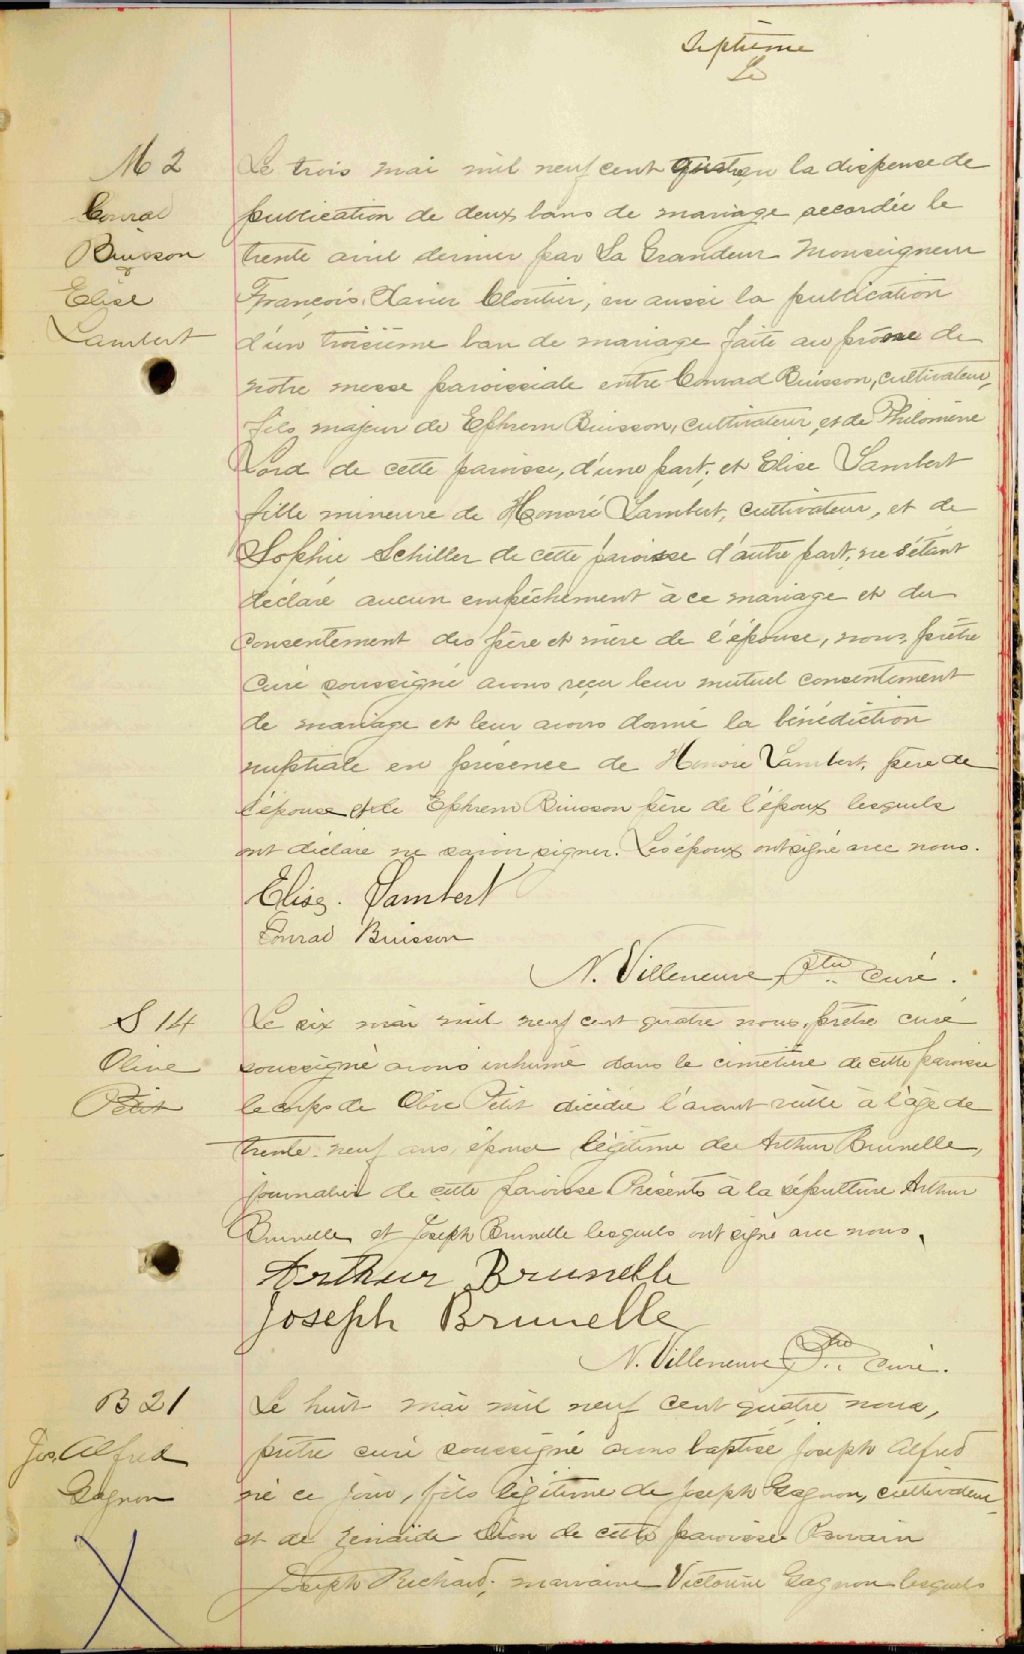 Septième
Le
M 2
Conrad
Buisson
&
Elise
Lambert
Le trois mai mil neuf cent quatre, vu la dispense de
publication de deux bans de mariage accordée le
trente avril dernier par Sa Grandeur Monseigneur
François Xavier Cloutier, vu aussi la publication
d'un troisième ban de mariage faite au prône de
notre messe paroissiale entre Conrad Buisson, cultivateur,
fils majeur de Ephrem Buisson, cultivateur, et de Philomène
Lord de cette paroisse, d'une part; et Elise Lambert
fille mineure de Honoré Lambert, cultivateur, et de
Sophie Schiller de cette paroisse d'autre part, ne s'étant
déclaré aucun empêchement à ce mariage et du
consentement des père et mère de l'épouse, nous, prêtre
curé soussigné avons reçu leur mutuel consentement
de mariage et leur avons donné la bénédiction
nuptiale en présence de Honoré Lambert, père de
l'épouse et de Ephrem Buisson père de l'époux lesquels
ont déclaré ne savoir signer. Les époux ont signé avec nous.
Elise Lambert
Conrad Buisson
N. Villeneuve Ptre curé.
S 14
Olive
Petit
Le six mai mil neuf cent quatre nous, prêtre curé
soussigné avons inhumé dans le cimetière de cette paroisse
le corps de Olive Petit décédée l'avant veille à l'âge de
trente-neuf ans, épouse légitime de Arthur Brunelle,
journalier de cette paroisse. Présents à la sépulture Arthur
Brunelle et Joseph Brunelle lesquels ont signé avec nous.
Arthur Brunelle
Joseph Brunelle
N. Villeneuve Ptre curé.
B 21
Jos. Alfred
Gagnon
Le huit mai mil neuf cent quatre nous,
prêtre curé soussigné avons baptisé Joseph Alfred
né ce jour, fils légitime de Joseph Gagnon, cultivateur
et de Zénaïde Dion de cette paroisse Parrain
Joseph Richard; marraine Victorine Gagnon lesquels